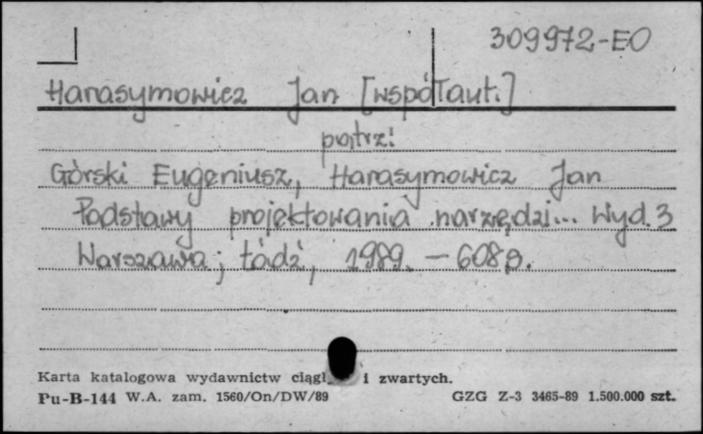 309972-EO
Harasymowicz Jan [współaut.]
patrz:
Górski Eugeniusz, Harasymowicz Jan
Podstawy projektowania narzędzi... Wyd. 3
Warszawa; Łódź, 1989. – 608 s.
Karta katalogowa wydawnictw ciągł i zwartych.
Pu-B-144 W.A. zam. 1560/On/DW/89 GZG Z-3 3465-89 1.500.000 szt.